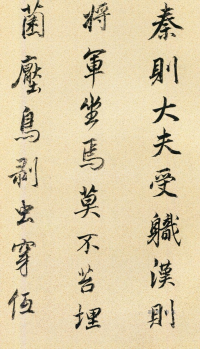 秦則大夫受軄漢則
將軍坐焉莫不苔埋
菌壓鳥剥虫穿低